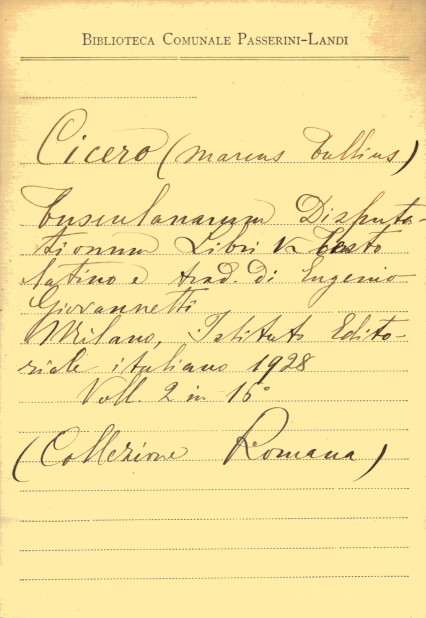 BIBLIOTECA COMUNALE PASSERINI-LANDI
Cicero (Marcus Tullius)
Tusculanarum Disputa-
tionum Libri V Testo
latino e trad. di Eugenio
Giovannetti
Milano, Istituto Edito-
riale italiano 1928
Voll. 2 in 16°
(Collezione Romana)